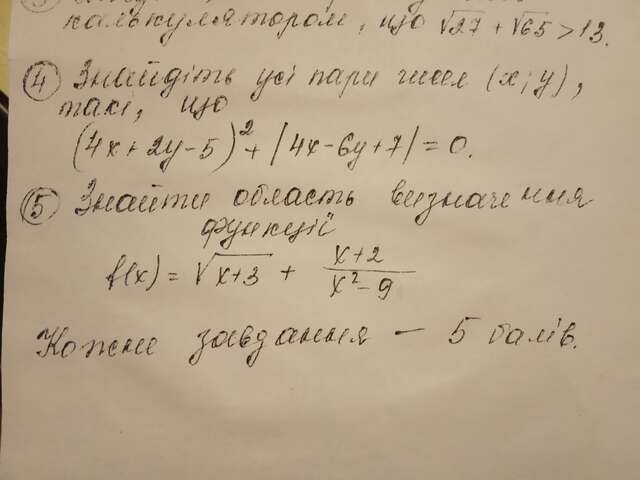 калькулятором, що √27 + √65 > 13.
④ Знайдіть усі пари чисел (x; y),
такі, що
(4x + 2y - 5)² + |4x - 6y + 7| = 0.
⑤ Знайти область визначення
функції
f(x) = √(x+3) + (x+2)/(x² - 9)
Кожне завдання — 5 балів.